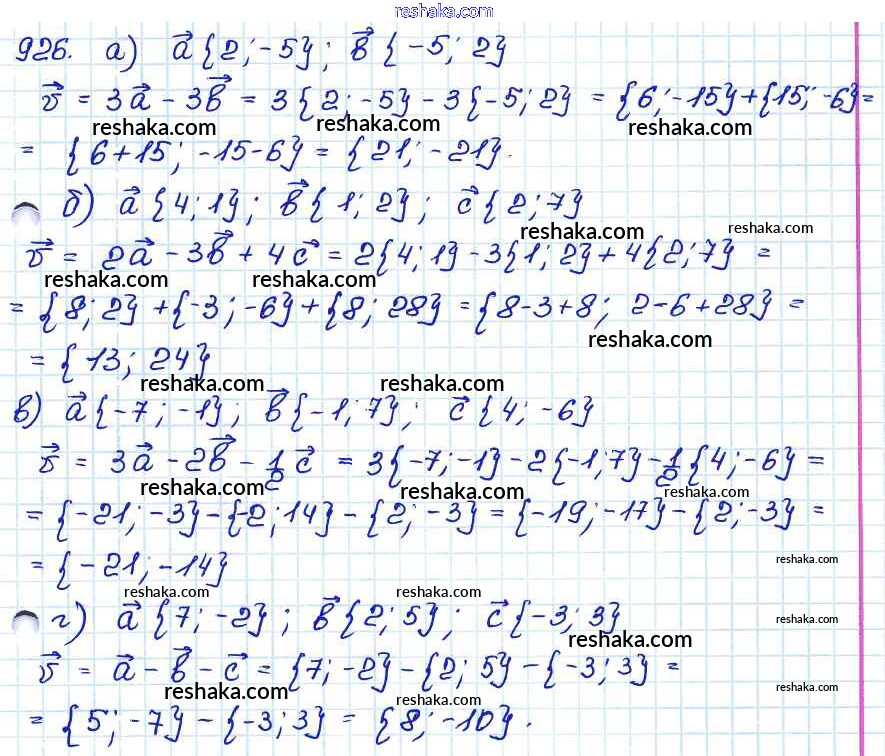 reshaka.com
926. а) a⃗ {2; -5}; b⃗ {-5; 2}
v⃗ = 3a⃗ - 3b⃗ = 3{2; -5} - 3{-5; 2} = {6; -15} + {15; -6} =
reshaka.com reshaka.com reshaka.com
= {6+15; -15-6} = {21; -21}.
б) a⃗ {4; 1}; b⃗ {1; 2}; c⃗ {2; 7}
reshaka.com reshaka.com
v⃗ = 2a⃗ - 3b⃗ + 4c⃗ = 2{4; 1} - 3{1; 2} + 4{2; 7} =
reshaka.com reshaka.com
= {8; 2} + {-3; -6} + {8; 28} = {8-3+8; 2-6+28} =
reshaka.com
= {13; 24}
reshaka.com reshaka.com
в) a⃗ {-7; -1}; b⃗ {-1; 7}; c⃗ {4; -6}
v⃗ = 3a⃗ - 2b⃗ - 1/2 c⃗ = 3{-7; -1} - 2{-1; 7} - 1/2 {4; -6} =
reshaka.com reshaka.com reshaka.com
= {-21; -3} - {-2; 14} - {2; -3} = {-19; -17} - {2; -3} =
reshaka.com
= {-21; -14}
reshaka.com reshaka.com
г) a⃗ {7; -2}; b⃗ {2; 5}; c⃗ {-3; 3}
reshaka.com
reshaka.com
v⃗ = a⃗ - b⃗ - c⃗ = {7; -2} - {2; 5} - {-3; 3} =
reshaka.com reshaka.com reshaka.com
= {5; -7} - {-3; 3} = {8; -10}.